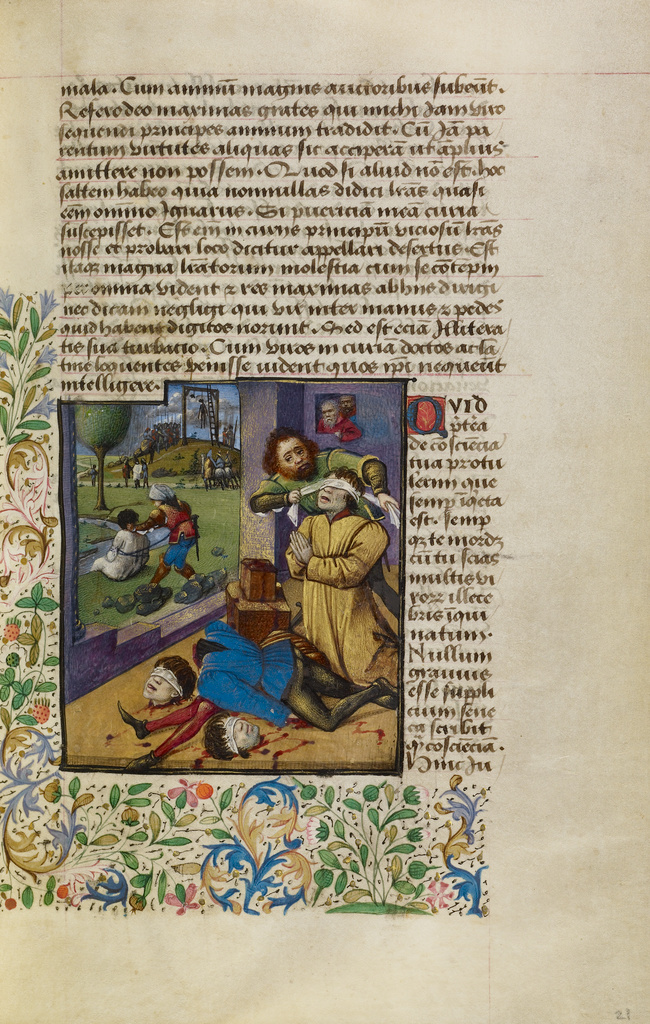 mala. Cum animū magnis auctoribus subeūt.
Refero deo maximas grates qui michi Jam viro
sequendi principes animum tradidit. Cū Jā pa
rentum virtutes aliquas sic acceperā ut āplius
amittere non possem. Quod si aliud nō est. hoc
saltem habeo quia nonnullas didici lr̄as quasi
eēm omnino Ignarus. Si pueriā meā curia
suscepisset. Est em̄ in curijs principū viciosū lr̄as
nosse et probri loco dicitur appellari desertus. Est
itaq magna lr̄atorum molestia cum se cōtēpni
per omnia vident et res maximas ab hiis dirigi
ne dicam negligi qui vix inter manus et pedes
quid habent digitos norunt. Sed est eciā Illitera
tis sua turbacio. Cum viros in curiā doctos ac la
tine loquentes venisse vident quos ip̄i nequeūt
intelligere.
QVID
p̄tēa
de cōsciēcia
tua protu
lerim que
semp īq̄eta
est. semp
q̄z te mordz
cū tu scias
multis vi
roꝝ illece
bris īqui
natum.
Nullum
grauius
esse suppli
cium sene
ca scribit
q̄ cōsciēcia.
Hinc Ju
21